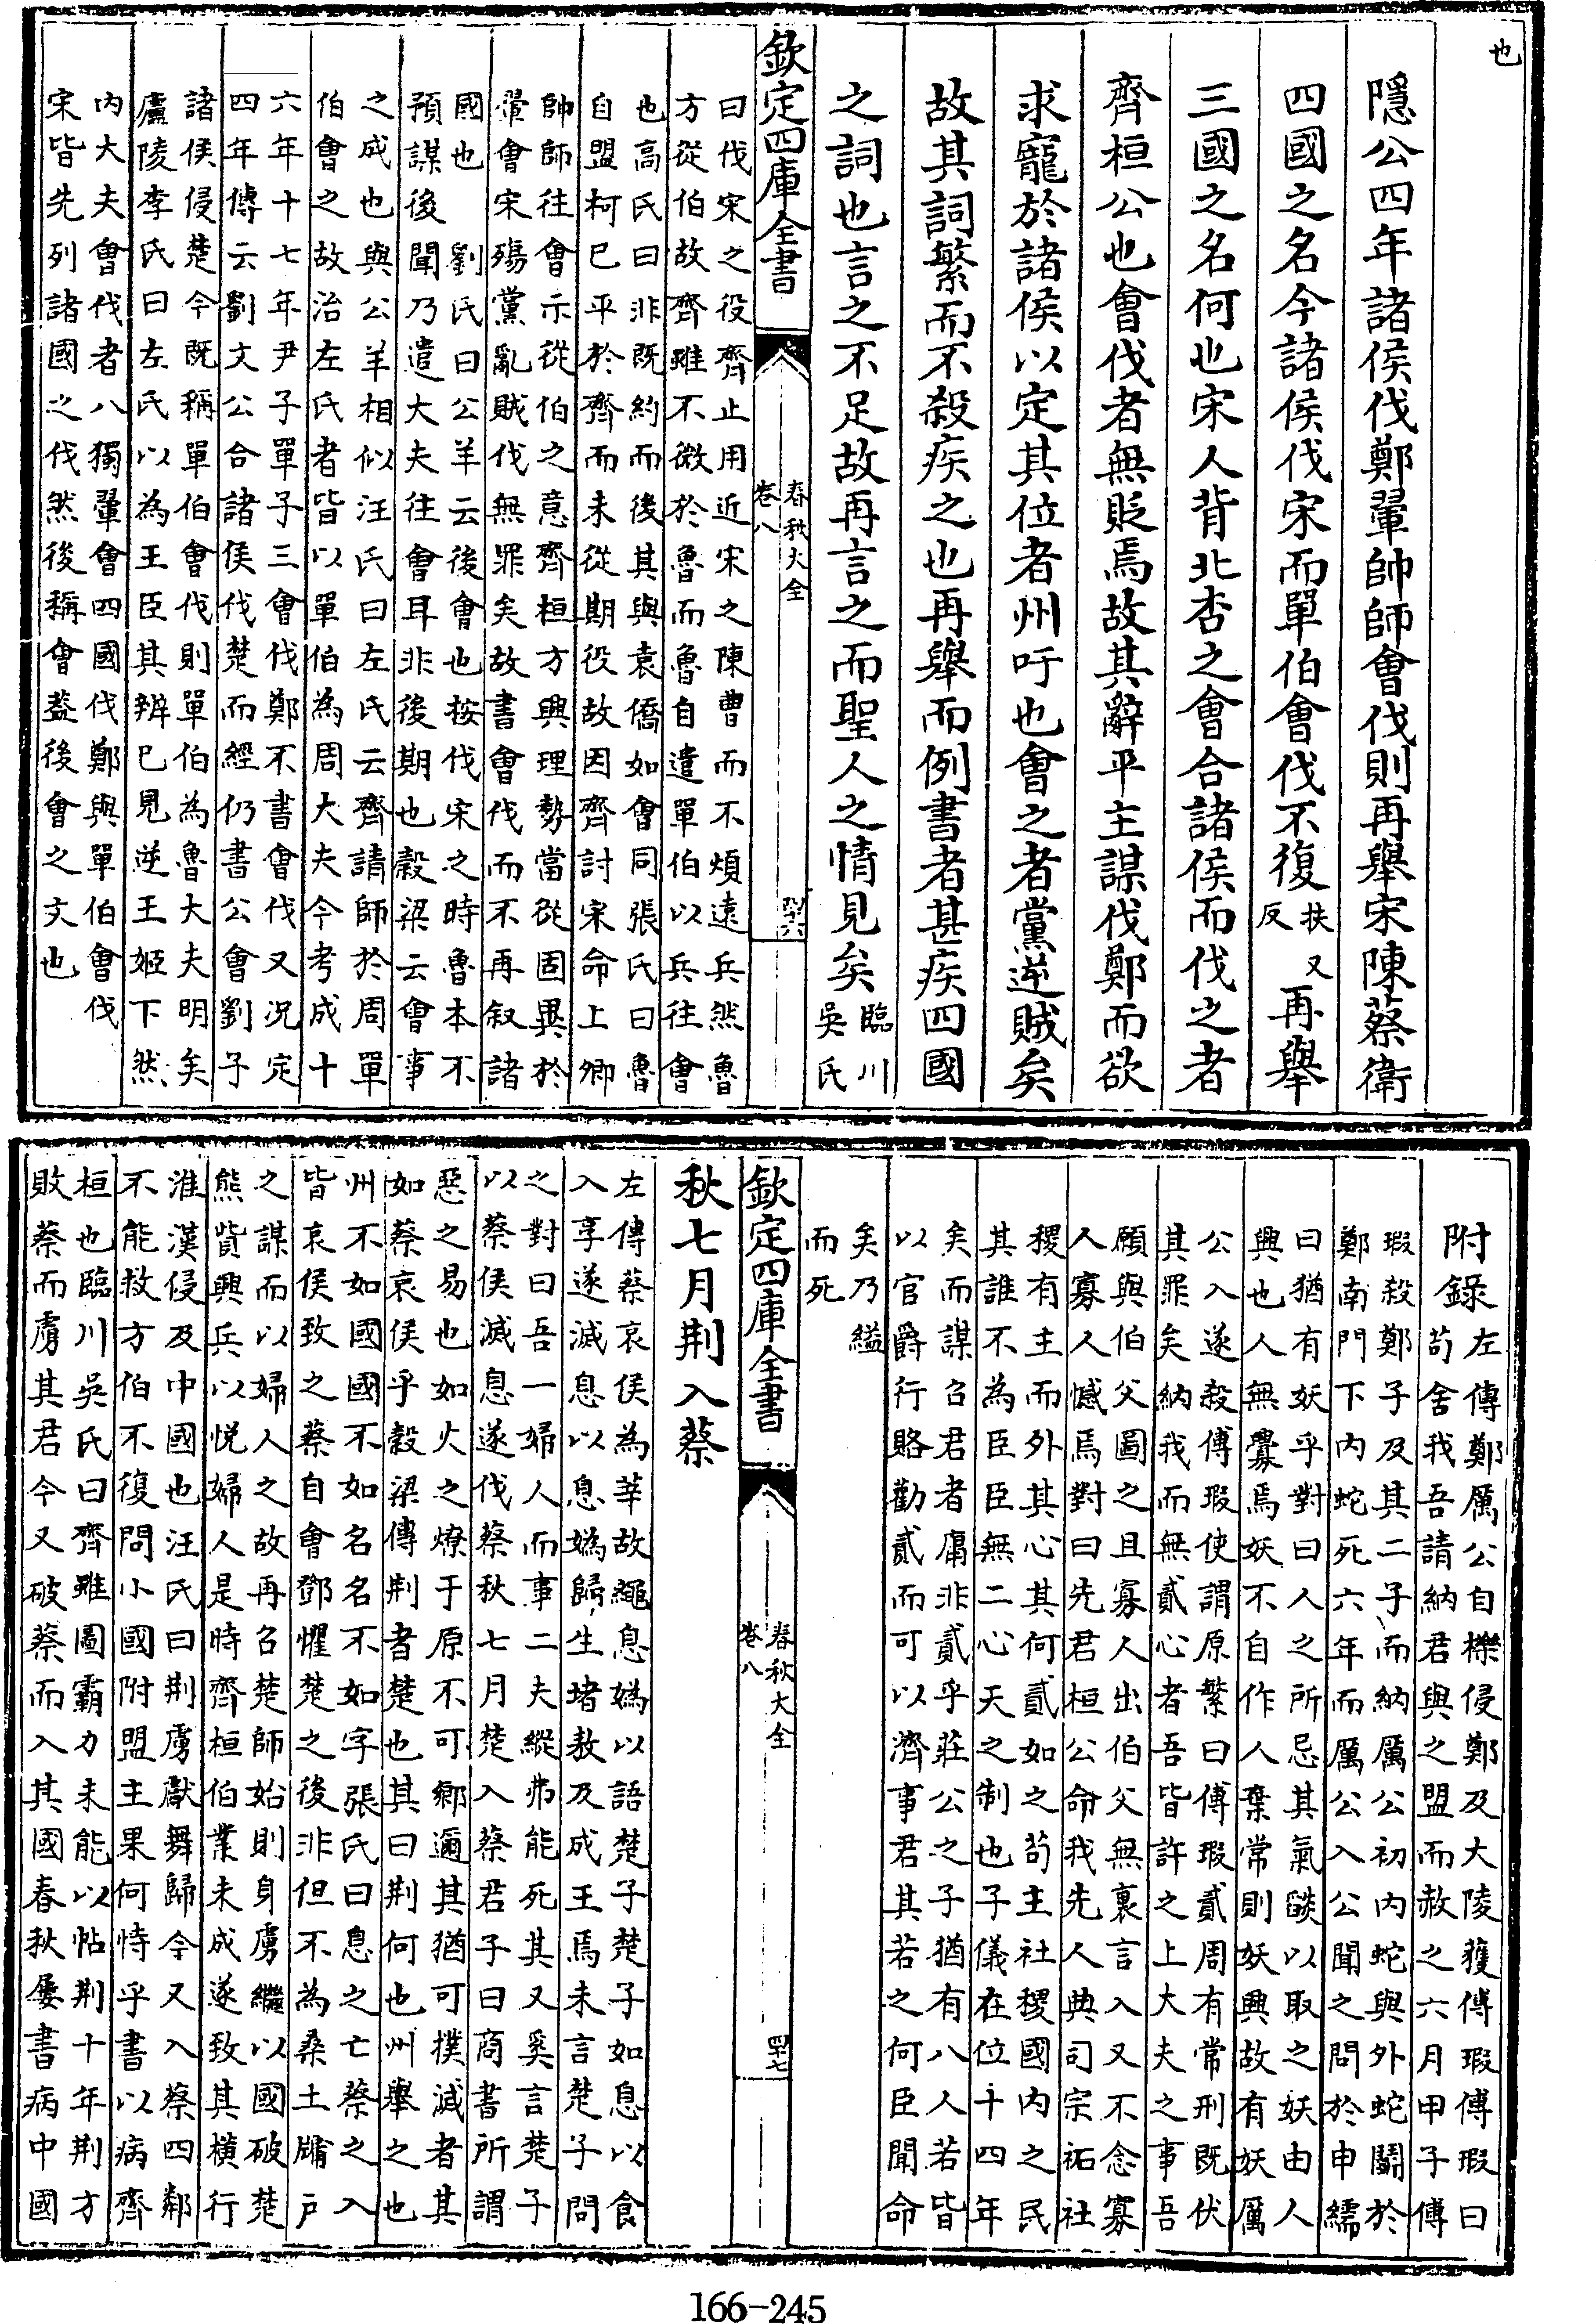 也
隱公四年諸侯伐鄭翬帥師會伐則再舉宋陳蔡衛
四國之名今諸侯伐宋而單伯會伐不復扶又反再舉
三國之名何也宋人背北杏之會合諸侯而伐之者
齊桓公也會伐者無貶焉故其辭平主謀伐鄭而欲
求寵於諸侯以定其位者州吁也會之者黨逆賊矣
故其詞繁而不殺疾之也再舉而例書者甚疾四國
之詞也言之不足故再言之而聖人之情見矣臨川
吳氏
欽定四庫全書
春秋大全
卷八
四十六
曰伐宋之役齊止用近宋之陳曹而不煩遠兵然魯
方從伯故齊雖不徵於魯而魯自遣單伯以兵往會
也高氏曰非既約而後其與袁僑如會同張氏曰魯
自盟柯已平於齊而未從期役故因齊討宋命上卿
帥師往會示從伯之意齊桓方興理勢當從固異於
翬會宋殤黨亂賊伐無罪矣故書會伐而不再敘諸
國也 劉氏曰公羊云後會也按伐宋之時魯本不
預謀後聞乃遣大夫往會耳非後期也穀梁云會事
之成也與公羊相似汪氏曰左氏云齊請師於周單
伯會之故治左氏者皆以單伯為周大夫今考成十
六年十七年尹子單子三會伐鄭不書會伐又況定
四年傳云劉文公合諸侯伐楚而經仍書公會劉子
諸侯侵楚今既稱單伯會伐則單伯為魯大夫明矣
廬陵李氏曰左氏以為王臣其辨已見逆王姬下然
內大夫會伐者八獨翬會四國伐鄭與單伯會伐
宋皆先列諸國之伐然後稱會蓋後會之文也
附錄左傳鄭厲公自櫟侵鄭及大陵獲傅瑕傅瑕曰
苟舍我吾請納君與之盟而赦之六月甲子傅
瑕殺鄭子及其二子而納厲公初內蛇與外蛇鬬於
鄭南門下內蛇死六年而厲公入公聞之問於申繻
曰猶有妖乎對曰人之所忌其氣燄以取之妖由人
興也人無釁焉妖不自作人棄常則妖興故有妖厲
公入遂殺傅瑕使謂原繁曰傅瑕貳周有常刑既伏
其罪矣納我而無貳心者吾皆許之上大夫之事吾
願與伯父圖之且寡人出伯父無裏言入又不念寡
人寡人憾焉對曰先君桓公命我先人典司宗祏社
稷有主而外其心其何貳如之苟主社稷國內之民
其誰不為臣臣無二心天之制也子儀在位十四年
矣而謀召君者庸非貳乎莊公之子猶有八人若皆
以官爵行賂勸貳而可以濟事君其若之何臣聞命
矣乃縊
而死
欽定四庫全書
春秋大全
卷八
四十七
秋七月荆入蔡
左傳蔡哀侯為莘故繩息媯以語楚子楚子如息以食
入享遂滅息以息媯歸生堵敖及成王焉未言楚子問
之對曰吾一婦人而事二夫縱弗能死其又奚言楚子
以蔡侯滅息遂伐蔡秋七月楚入蔡君子曰商書所謂
惡之易也如火之燎于原不可鄉邇其猶可撲滅者其
如蔡哀侯乎穀梁傳荆者楚也其曰荆何也州舉之也
州不如國國不如名名不如字張氏曰息之亡蔡之入
皆哀侯致之蔡自會鄧懼楚之後非但不為桑土牖戶
之謀而以婦人之故再召楚師始則身虜繼以國破楚
熊貲興兵以悅婦人是時齊桓伯業未成遂致其橫行
淮漢侵及中國也汪氏曰荆虜獻舞歸今又入蔡四鄰
不能救方伯不復問小國附盟主果何恃乎書以病齊
桓也臨川吳氏曰齊雖圖霸力未能以帖荆十年荆方
敗蔡而虜其君今又破蔡而入其國春秋屢書病中國
166-245